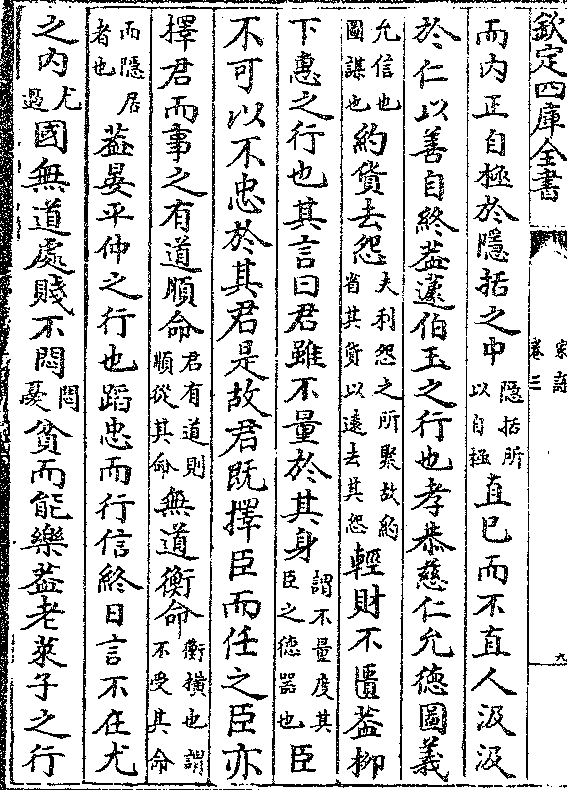 欽定四庫全書
家語
卷三
九
而内正自極於隱括之中隱括所以自極直己而不直人汲汲
於仁以善自終葢蘧伯玉之行也孝恭慈仁允德圖義
允信也圖謀也約貨去怨夫利怨之所聚故約省其貨以遠去其怨輕財不匱葢柳
下惠之行也其言曰君雖不量於其身謂不量度其臣之德器也臣
不可以不忠於其君是故君既擇臣而任之臣亦
擇君而事之有道順命君有道則順從其命無道衡命衡橫也謂不受其命
而隱居者也葢晏平仲之行也蹈忠而行信終日言不在尤
之内尤過國無道處賤不悶悶憂貧而能樂葢老萊子之行